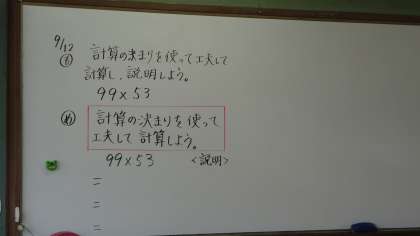 9/12
も 計算の決まりを使って工夫して
計算し、説明しよう。
99×53
め 計算の決まりを使って
工夫して計算しよう。
99×53 <説明>
=
=
=